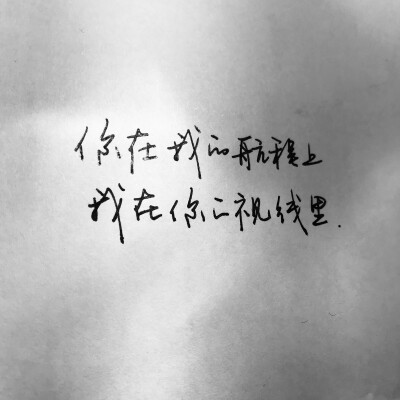 你在我的航程上
我在你的视线里.